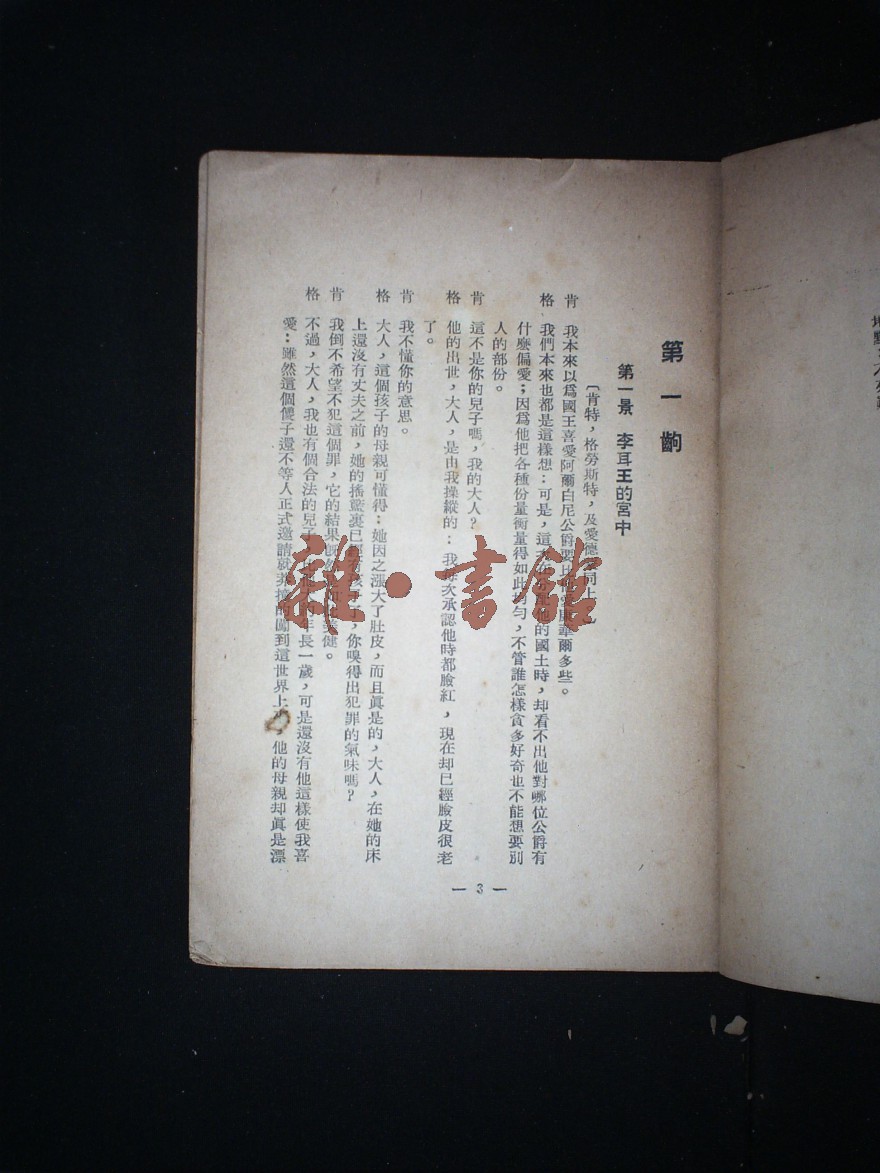 第一齣
第一景 李耳王的宮中
〔肯特,格勞斯特,及愛德 同上
肯 我本來以爲國王喜愛阿爾白尼公爵要比 華爾多些。
格 我們本來也都是這樣想:可是,這 他的國土時,却看不出他對哪位公爵有
什麼偏愛;因爲他把各種份量衡量得如此均勻,不管誰怎樣貪多好奇也不能想要別
人的部份。
肯 這不是你的兒子嗎,我的大人?
格 他的出世,大人,是由我操縱的:我每次承認他時都臉紅,現在却已經臉皮很老
了。
肯 我不懂你的意思。
格 大人,這個孩子的母親可懂得:她因之漲大了肚皮,而且眞是的,大人,在她的床
上還沒有丈夫之前,她的搖籃裏已 ,你嗅得出犯罪的氣味嗎?
肯 我倒不希望不犯這個罪,它的結果 健。
格 不過,大人,我也有個合法的兒子 年長一歲,可是還沒有他這樣使我喜
愛:雖然這個傻子還不等人正式邀請就 闖到這世界上 ,他的母親却眞是漂
— 3 —
雜·書館